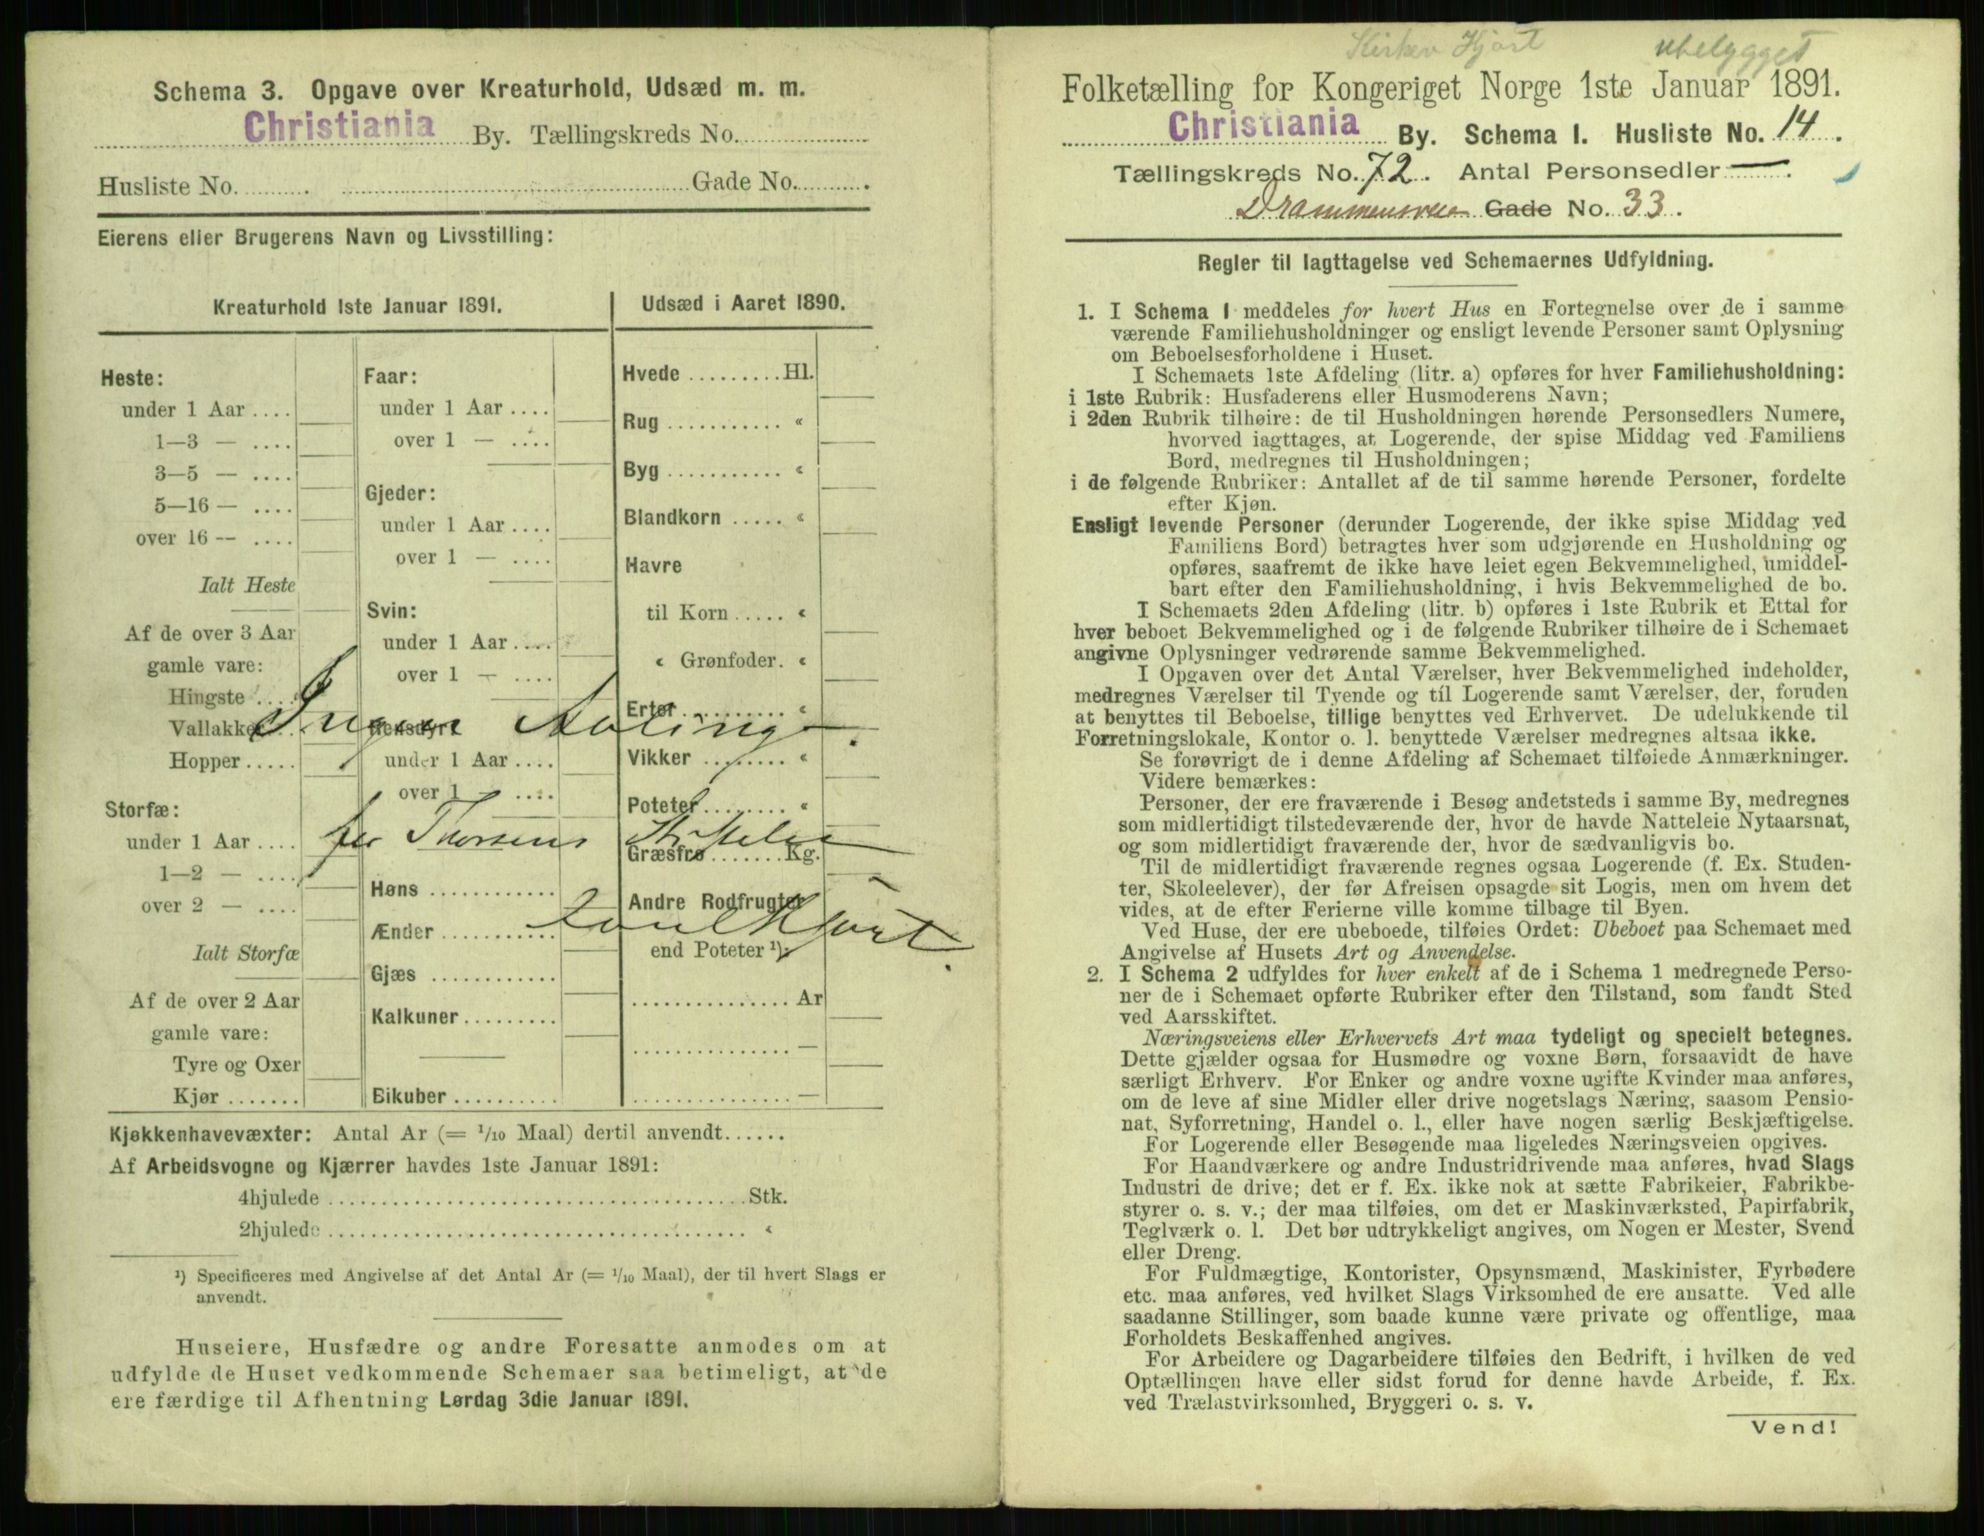 Schema 3. Opgave over Kreaturhold, Udsæd m. m.
Christiania By. Tællingskreds No.
Husliste No. Gade No.
Eierens eller Brugerens Navn og Livsstilling:
Kreaturhold 1ste Januar 1891.
Heste:
under 1 Aar ....
1—3 — ....
3—5 — ....
5—16 — ....
over 16 — ....
Ialt Heste
Af de over 3 Aar
gamle vare:
Hingste ....
Vallakker ..
Hopper .....
Storfæ:
under 1 Aar ....
1—2 — ....
over 2 — ....
Ialt Storfæ
Af de over 2 Aar
gamle vare:
Tyre og Oxer
Kjør .......
Faar:
under 1 Aar ....
over 1 — ....
Gjeder:
under 1 Aar ....
over 1 — ....
Svin:
under 1 Aar ....
over 1 — ....
Rensdyr:
under 1 Aar ....
over 1 — ....
Høns ............
Ænder ...........
Gjæs ............
Kalkuner .........
Bikuber ..........
Udsæd i Aaret 1890.
Hvede ......... Hl.
Rug ........... «
Byg ........... «
Blandkorn ..... «
Havre
til Korn ..... «
« Grønfoder. «
Erter .......... «
Vikker ........ «
Poteter ........ «
Græsfrø ....... Kg.
Andre Rodfrugter
end Poteter ¹):
............... Ar
............... —
............... —
Ingen Avling.
for Thorsens
Hjort.
Kjøkkenhavevæxter: Antal Ar (= 1/10 Maal) dertil anvendt......
Af Arbeidsvogne og Kjærrer havdes 1ste Januar 1891:
4hjulede ........ Stk.
2hjulede ........ «
¹) Specificeres med Angivelse af det Antal Ar (= 1/10 Maal), der til hvert Slags er
anvendt.
Huseiere, Husfædre og andre Foresatte anmodes om at
udfylde de Huset vedkommende Schemaer saa betimeligt, at de
ere færdige til Afhentning Lørdag 3die Januar 1891.
Hjort ubebygget
Folketælling for Kongeriget Norge 1ste Januar 1891.
Christiania By. Schema I. Husliste No. 14.
Tællingskreds No. 72. Antal Personsedler —.
Drammensveien Gade No. 33.
Regler til Iagttagelse ved Schemaernes Udfyldning.
1. I Schema 1 meddeles for hvert Hus en Fortegnelse over de i samme
værende Familiehusholdninger og ensligt levende Personer samt Oplysning
om Beboelsesforholdene i Huset.
I Schemaets 1ste Afdeling (litr. a) opføres for hver Familiehusholdning:
i 1ste Rubrik: Husfaderens eller Husmoderens Navn;
i 2den Rubrik tilhøire: de til Husholdningen hørende Personsedlers Numere,
hvorved iagttages, at Logerende, der spise Middag ved Familiens
Bord, medregnes til Husholdningen;
i de følgende Rubriker: Antallet af de til samme hørende Personer, fordelte
efter Kjøn.
Ensligt levende Personer (derunder Logerende, der ikke spise Middag ved
Familiens Bord) betragtes hver som udgjørende en Husholdning og
opføres, saafremt de ikke have leiet egen Bekvemmelighed, umiddel-
bart efter den Familiehusholdning, i hvis Bekvemmelighed de bo.
I Schemaets 2den Afdeling (litr. b) opføres i 1ste Rubrik et Ettal for
hver beboet Bekvemmelighed og i de følgende Rubriker tilhøire de i Schemaet
angivne Oplysninger vedrørende samme Bekvemmelighed.
I Opgaven over det Antal Værelser, hver Bekvemmelighed indeholder,
medregnes Værelser til Tyende og til Logerende samt Værelser, der, foruden
at benyttes til Beboelse, tillige benyttes ved Erhvervet. De udelukkende til
Forretningslokale, Kontor o. l. benyttede Værelser medregnes altsaa ikke.
Se forøvrigt de i denne Afdeling af Schemaet tilføiede Anmærkninger.
Videre bemærkes:
Personer, der ere fraværende i Besøg andetsteds i samme By, medregnes
som midlertidigt tilstedeværende der, hvor de havde Natteleie Nytaarsnat,
og som midlertidigt fraværende der, hvor de sædvanligvis bo.
Til de midlertidigt fraværende regnes ogsaa Logerende (f. Ex. Studen-
ter, Skoleelever), der før Afreisen opsagde sit Logis, men om hvem det
vides, at de efter Ferierne ville komme tilbage til Byen.
Ved Huse, der ere ubeboede, tilføies Ordet: Ubeboet paa Schemaet med
Angivelse af Husets Art og Anvendelse.
2. I Schema 2 udfyldes for hver enkelt af de i Schema 1 medregnede Perso-
ner de i Schemaet opførte Rubriker efter den Tilstand, som fandt Sted
ved Aarsskiftet.
Næringsveiens eller Erhvervets Art maa tydeligt og specielt betegnes.
Dette gjælder ogsaa for Husmødre og voxne Børn, forsaavidt de have
særligt Erhverv. For Enker og andre voxne ugifte Kvinder maa anføres,
om de leve af sine Midler eller drive nogetslags Næring, saasom Pensio-
nat, Syforretning, Handel o. l., eller have nogen særlig Beskjæftigelse.
For Logerende eller Besøgende maa ligeledes Næringsveien opgives.
For Haandværkere og andre Industridrivende maa anføres, hvad Slags
Industri de drive; det er f. Ex. ikke nok at sætte Fabrikeier, Fabrikbe-
styrer o. s. v.; der maa tilføies, om det er Maskinværksted, Papirfabrik,
Teglværk o. l. Det bør udtrykkeligt angives, om Nogen er Mester, Svend
eller Dreng.
For Fuldmægtige, Kontorister, Opsynsmænd, Maskinister, Fyrbødere
etc. maa anføres, ved hvilket Slags Virksomhed de ere ansatte. Ved alle
saadanne Stillinger, som baade kunne være private og offentlige, maa
Forholdets Beskaffenhed angives.
For Arbeidere og Dagarbeidere tilføies den Bedrift, i hvilken de ved
Optællingen have eller sidst forud for denne havde Arbeide, f. Ex.
ved Trælastvirksomhed, Bryggeri o. s. v.
Vend!